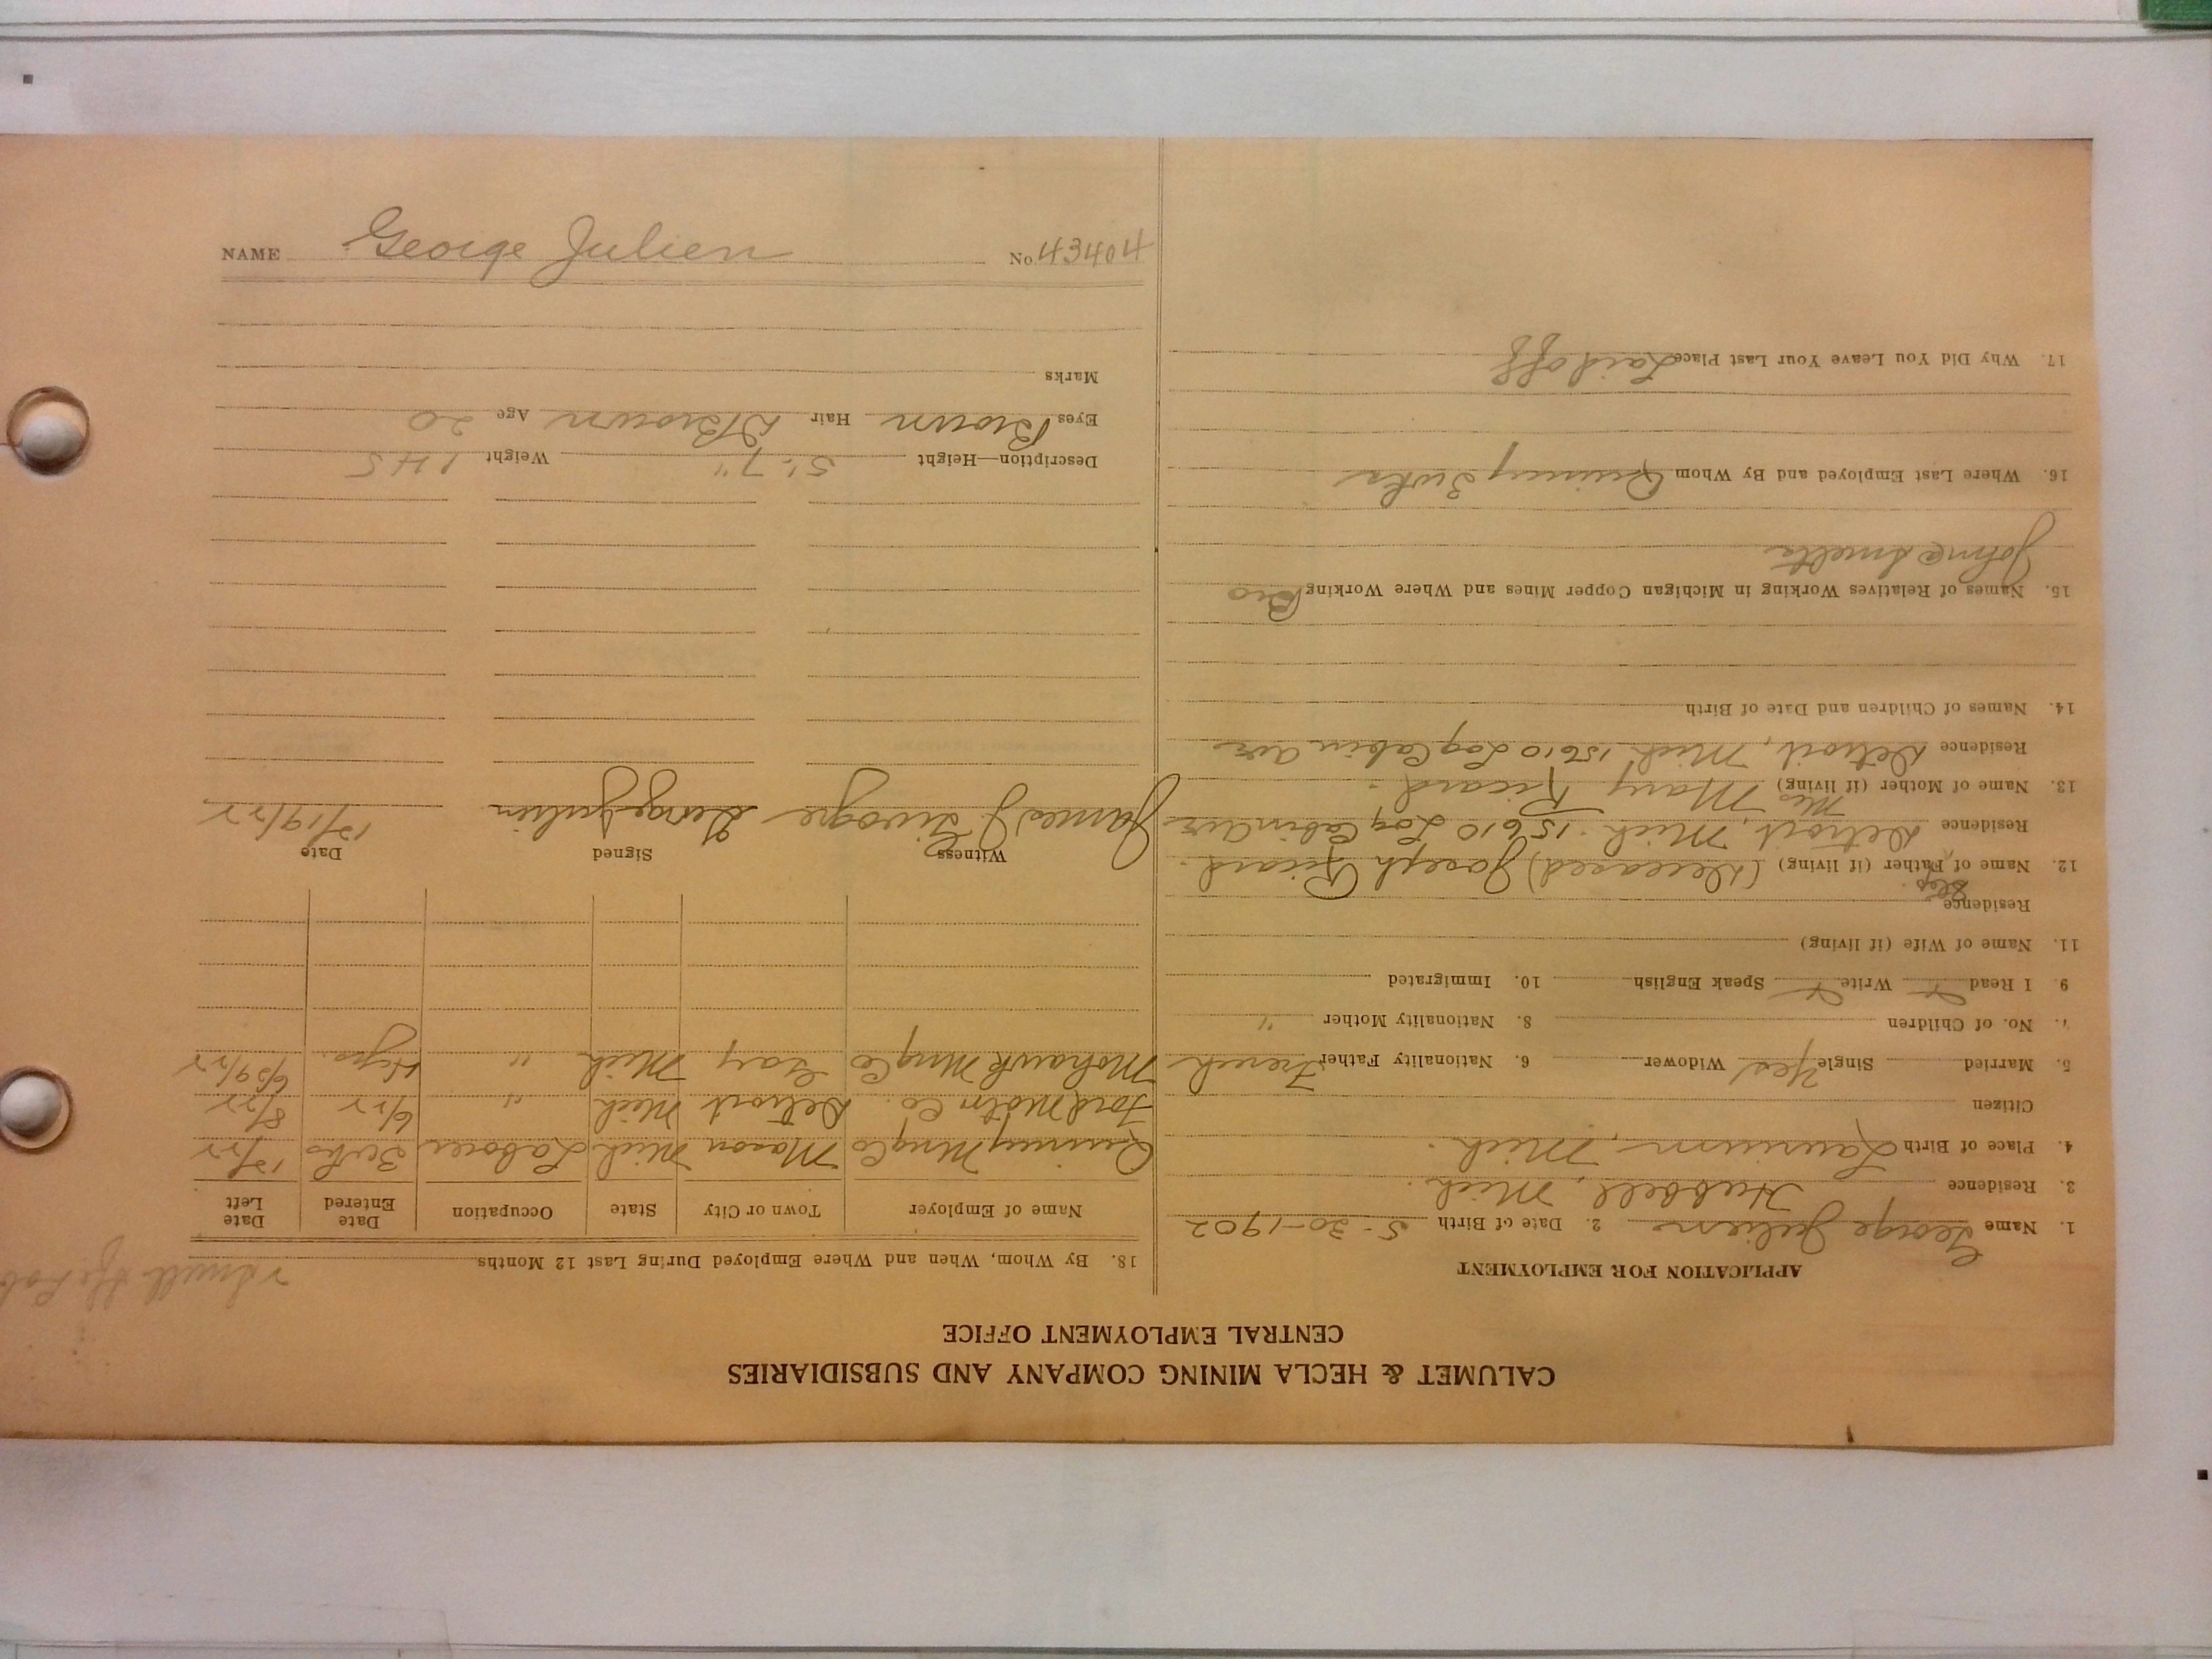 CALUMET & HECLA MINING COMPANY AND SUBSIDIARIES
CENTRAL EMPLOYMENT OFFICE
APPLICATION FOR EMPLOYMENT
1. Name George Julien 2. Date of Birth 5-20-1902
3. Residence Hubbell, Mich.
4. Place of Birth Laurium, Mich.
Citizen
5. Married Single Yes Widower 6. Nationality Father French
7. No. of Children 8. Nationality Mother "
9. I Read Write Speak English 10. Immigrated
11. Name of Wife (if living)
Residence
Step
12. Name of Father (if living) (Deceased) Joseph Ricard.
Residence Detroit, Mich. 15610 Log Cabin Ave
Mrs
13. Name of Mother (if living) Mary Ricard.
Residence Detroit, Mich. 15610 Log Cabin Ave
14. Names of Children and Date of Birth
15. Names of Relatives Working in Michigan Copper Mines and Where Working Bro
John @ Smelta
16. Where Last Employed and By Whom Quincy 3 wks
17. Why Did You Leave Your Last Place Laid off
18. By Whom, When and Where Employed During Last 12 Months
Name of Employer Town or City State Occupation Date Entered Date Left
Quincy Mng Co Mason Mich Laborer 3 wks 12/22
Ford Motor Co. Detroit Mich " 6/22 8/22
Mohawk Mng Co Gay Mich " 4 yrs.
Witness Signed Date
James J. George Julien 12/19/22
Description—Height 5'-7" Weight 145
Eyes Brown Hair D Brown Age 20
Marks
NAME George Julien No. 43404